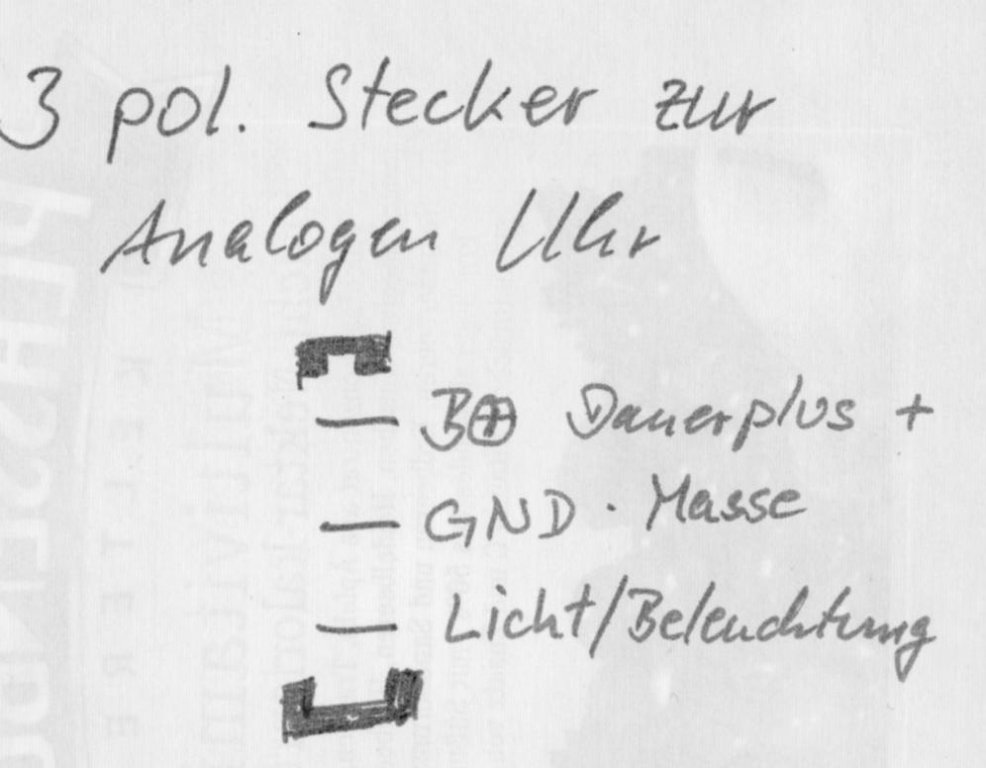 3 pol. Stecker zur
Analogen Uhr
B⊕ Dauerplus +
GND. Masse
Licht/Beleuchtung